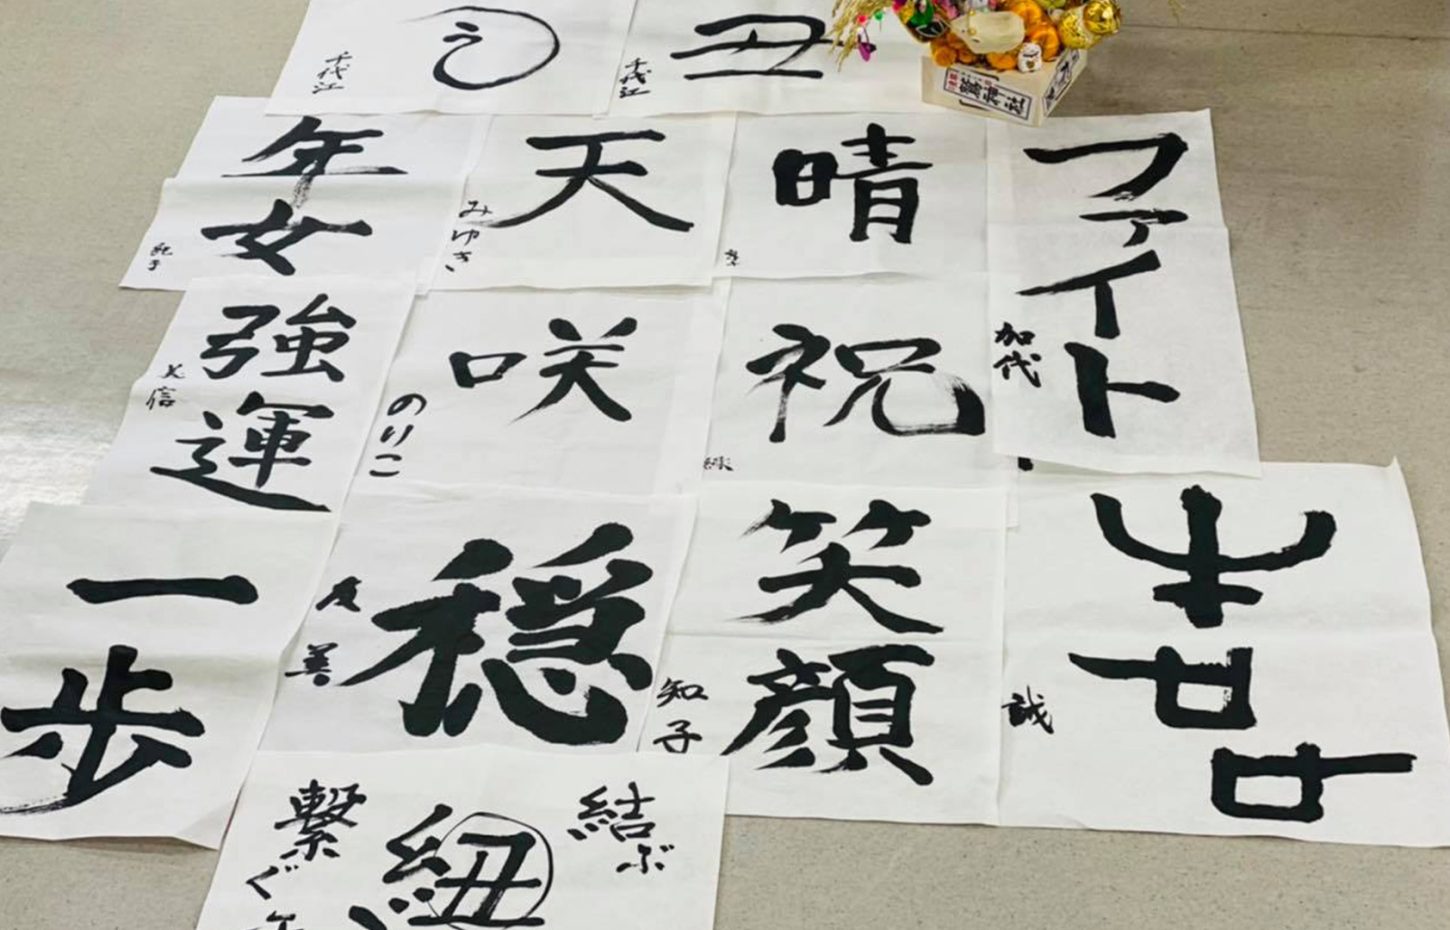 千代江
丑
千代江
鷲神社
年女
紀子
天
みゆき
晴
ファイト
加代
強運
咲
のりこ
祝
一歩
穏
友美
笑顔
知子
誠
結ぶ
紐
繋ぐ